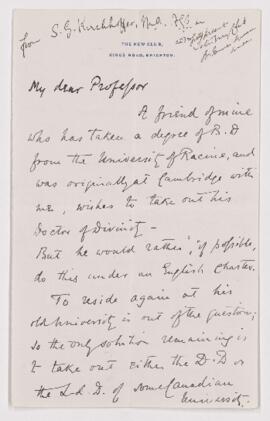 from S. G. Kirchhoffer, M.A.
THE NEW CLUB,
KINGS ROAD, BRIGHTON.
My dear Professor
A friend of mine
who has taken a degree of B.D
from the University of Racine, and
was originally at Cambridge with
me, wishes to take out his
Doctor of Divinity –
But he would rather, if possible,
do this under an English Charter.
To reside again at his
old University is out of the question;
so the only solution remaining is
to take out either the D.D or
the L.L.D. of some Canadian
University.